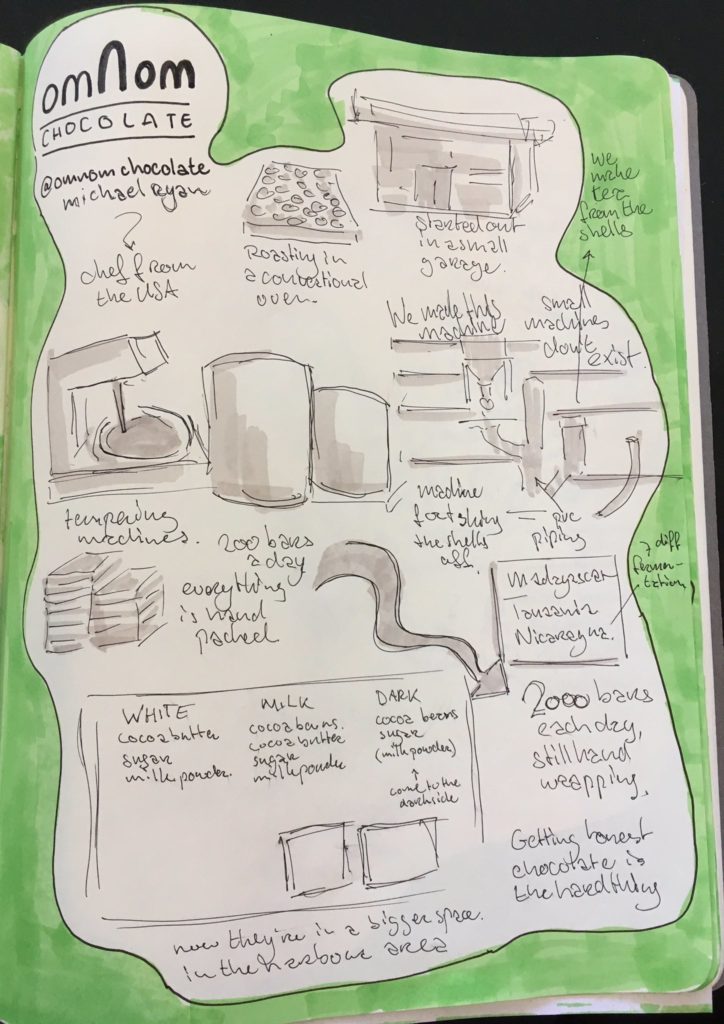 omnom
CHOCOLATE
@omnomchocolate
michael ryan
chef from
the USA
Roasting in
a conventional
oven.
Started out
in a small
garage.
we
make
tea
from the
shells
We made this
machine
small
machines
don't
exist.
tempering
machines.
200 bars
a day
everything
is hand
packed
machine
for taking
the shells
off.
pvc
piping
Madagascar
Tanzania
Nicaragua.
7 diff
fermen-
tation
WHITE
cocoabutter
sugar
milkpowder.
MILK
cocoa beans.
cocoa butter
sugar
milkpowder
DARK
cocoa beans
sugar
(milkpowder)
come to the
darkside
2000 bars
each day,
still hand
wrapping.
Getting honest
chocolate is
the hard thing
now they're in a bigger space.
in the harbour area